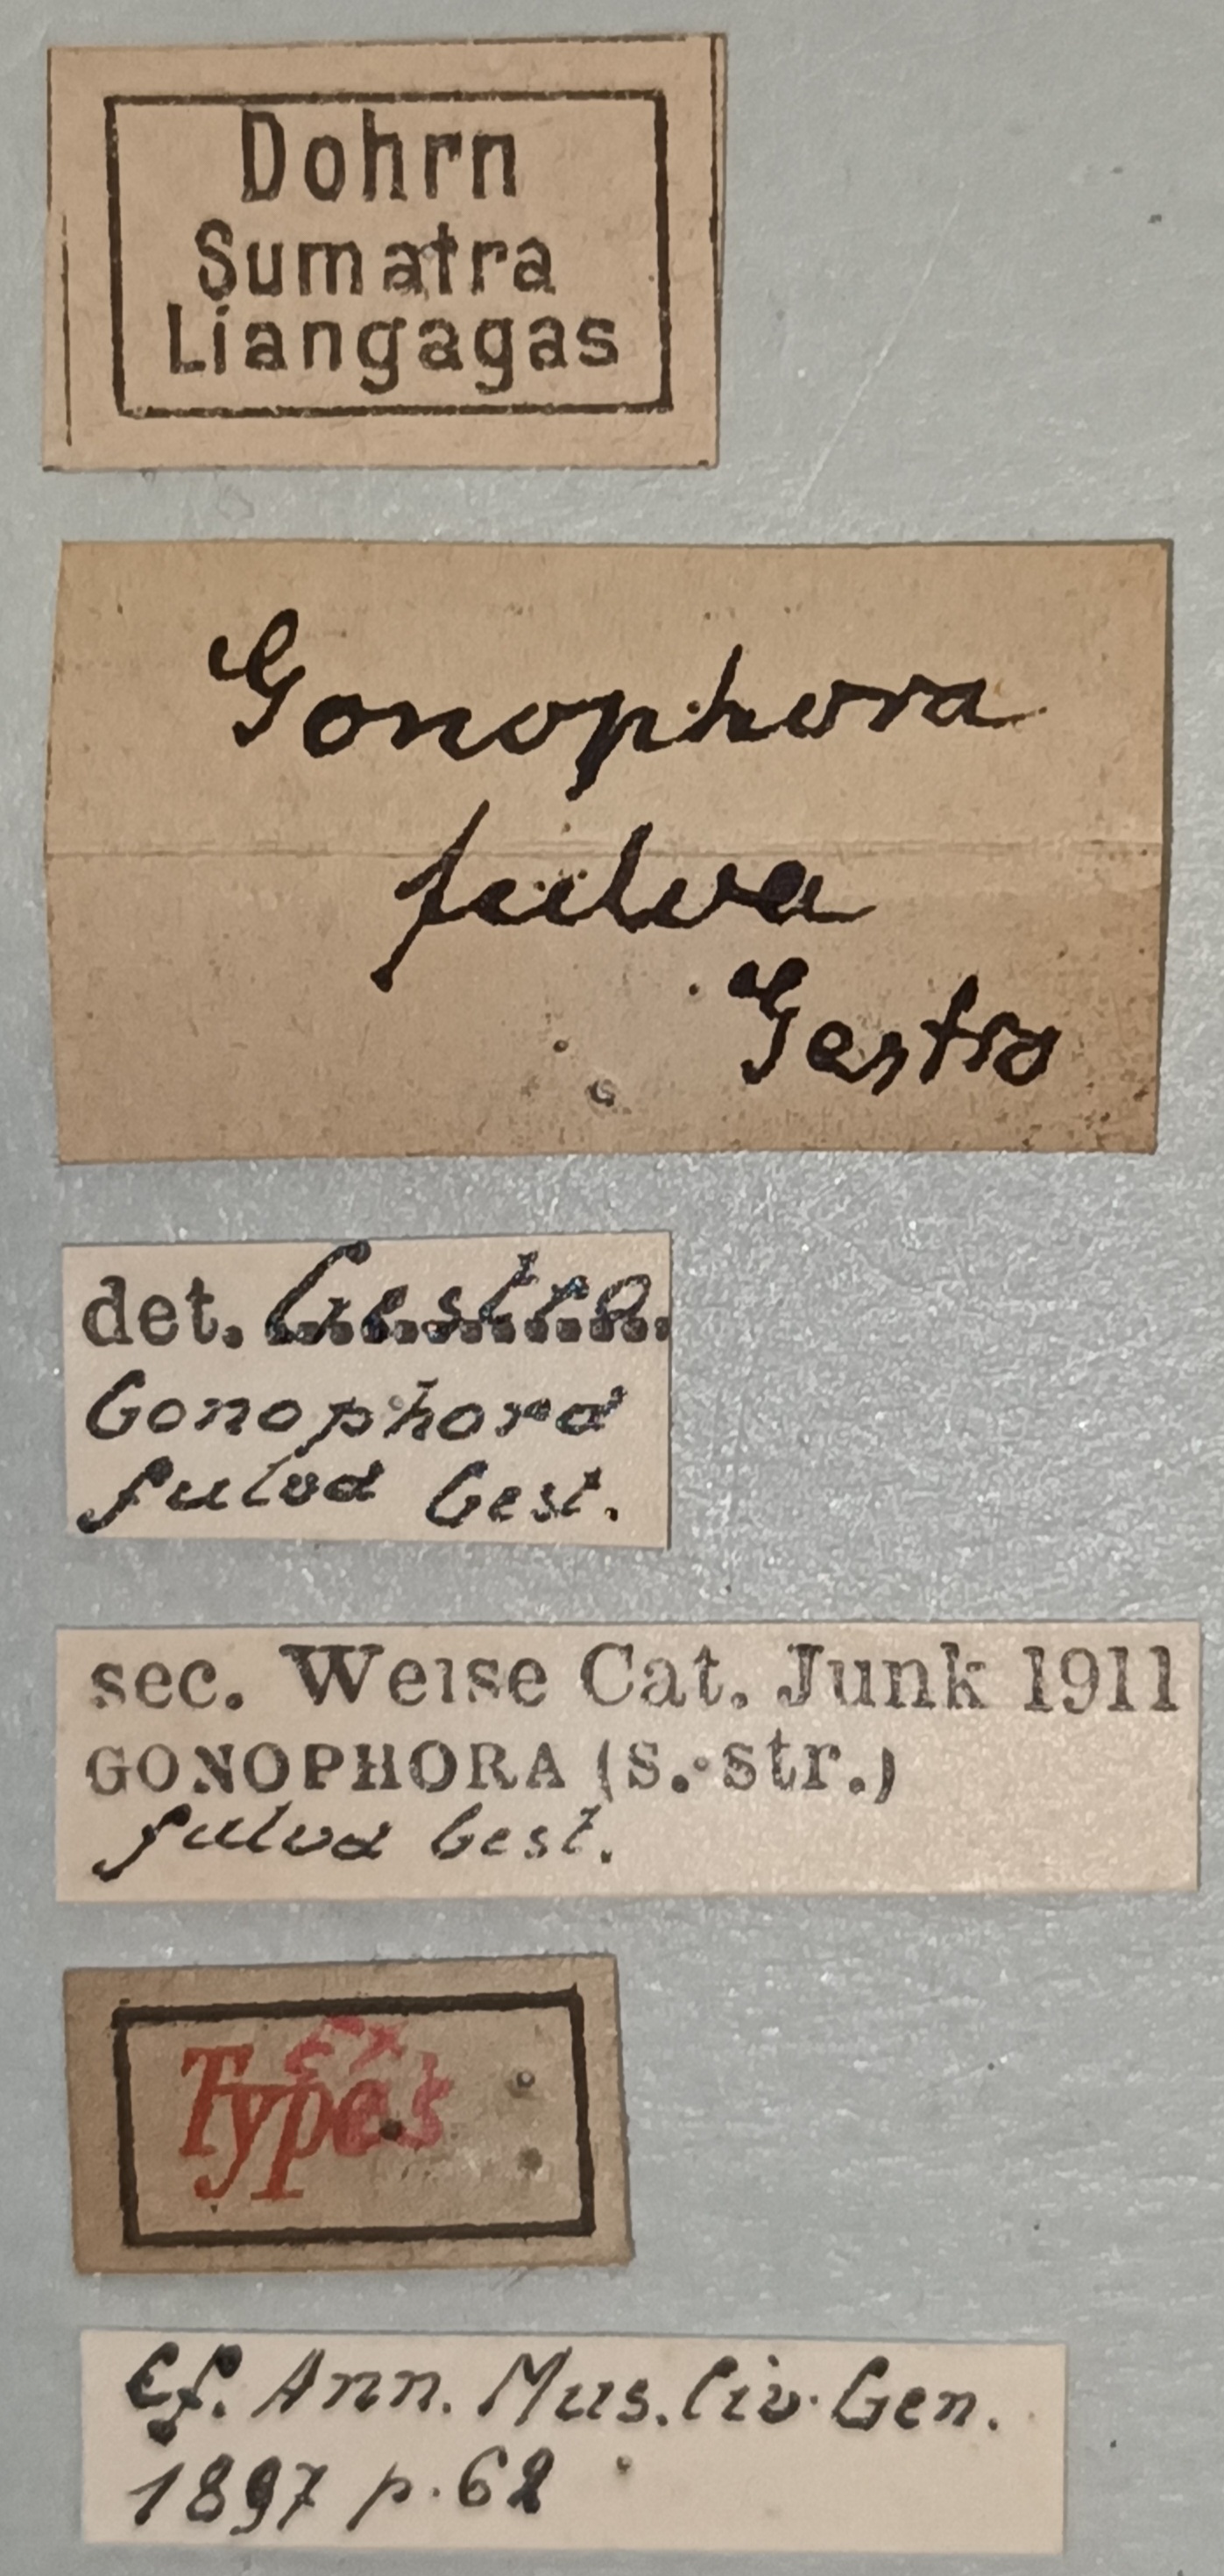 Dohrn
Sumatra
Liangagas
Gonophora
fulva
Gestro
det. Gestro.
Gonophora
fulva Gest.
sec. Weise Cat. Junk 1911
GONOPHORA (s. str.)
fulva Gest.
Ex
Types
Cf. Ann. Mus. Civ. Gen.
1897 p. 62